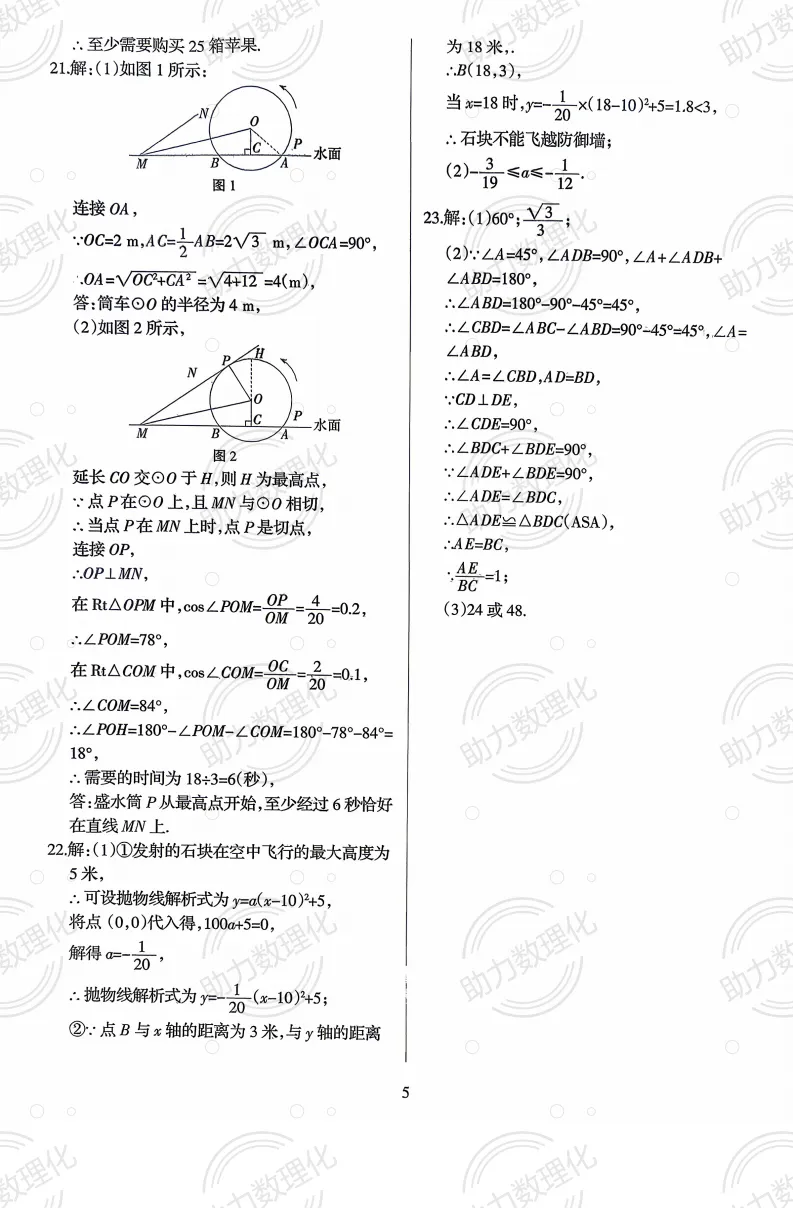 ∴至少需要购买25箱苹果.
21.解:(1)如图1所示:
N
O
C
P
水面
M
B
A
图1
连接OA,
∵OC=2 m,AC=1/2AB=2√3 m,∠OCA=90°,
∴OA=√(OC²+CA²)=√(4+12)=4(m),
答:筒车⊙O的半径为4 m,
(2)如图2所示,
P
H
N
O
C
P
水面
M
B
A
图2
延长CO交⊙O于H,则H为最高点,
∵点P在⊙O上,且MN与⊙O相切,
∴当点P在MN上时,点P是切点,
连接OP,
∴OP⊥MN,
在Rt△OPM中,cos∠POM=OP/OM=4/20=0.2,
∴∠POM=78°,
在Rt△COM中,cos∠COM=OC/OM=2/20=0.1,
∴∠COM=84°,
∴∠POH=180°-∠POM-∠COM=180°-78°-84°=
18°,
∴需要的时间为18÷3=6(秒),
答:盛水筒P从最高点开始,至少经过6秒恰好
在直线MN上.
22.解:(1)①发射的石块在空中飞行的最大高度为
5米,
∴可设抛物线解析式为y=a(x-10)²+5,
将点(0,0)代入得,100a+5=0,
解得a=-1/20,
∴抛物线解析式为y=-1/20(x-10)²+5;
②∵点B与x轴的距离为3米,与y轴的距离
为18米,.
∴B(18,3),
当x=18时,y=-1/20×(18-10)²+5=1.8<3,
∴石块不能飞越防御墙;
(2)-3/19≤a≤-1/12.
23.解:(1)60°;√3/3;
(2)∵∠A=45°,∠ADB=90°,∠A+∠ADB+
∠ABD=180°,
∴∠ABD=180°-90°-45°=45°,
∴∠CBD=∠ABC-∠ABD=90°-45°=45°,∠A=
∠ABD,
∴∠A=∠CBD,AD=BD,
∵CD⊥DE,
∴∠CDE=90°,
∴∠BDC+∠BDE=90°,
∵∠ADE+∠BDE=90°,
∴∠ADE=∠BDC,
∴△ADE≌△BDC(ASA),
∴AE=BC,
∴AE/BC=1;
(3)24或48.
5
助力数理化